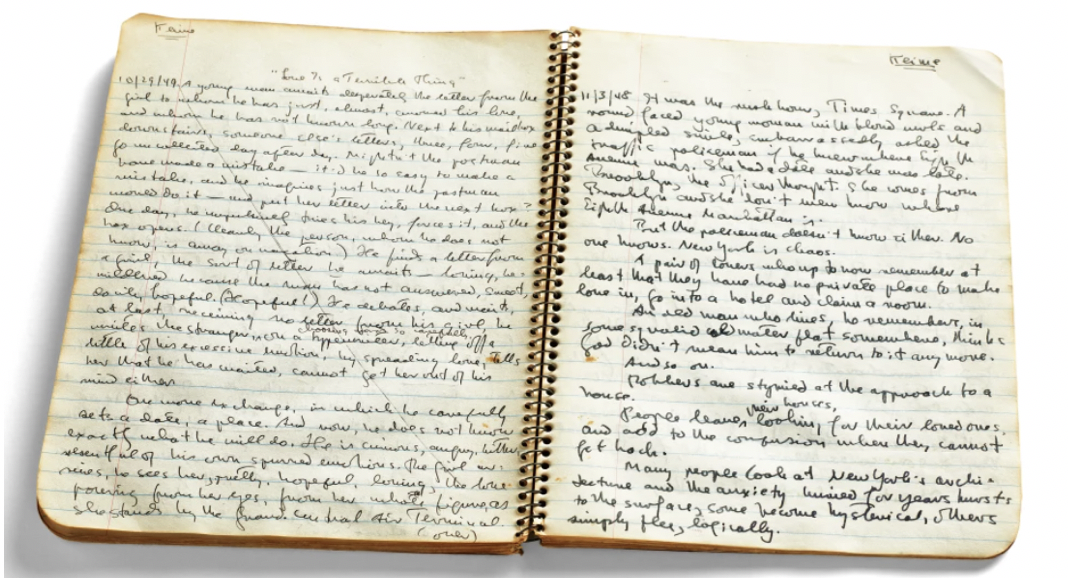 Keime
"Love Is a Terrible Thing"
10/29/49 A young man awaits desperately the letter from the
girl to whom he has just, almost, avowed his love,
and whom he has not known long. Next to his mailbox
downstairs, someone else's letters, three, four, five
go uncollected day after day. Mightn't the postman
have made a mistake — it'd be so easy to make a
mistake, and he imagines just how the postman
would do it — and put her letter into the next box?
One day, he tries his key, forces it, and the
box opens. (Clearly the person, whom he does not
know, is away on vacation.) He finds a letter from
a girl, the sort of letter he awaits — loving, be-
wildered because the man has not answered, sweet,
hopeful. (Hopeful!) He debates, and waits,
at last, receiving no letter from his girl, he
writes the stranger on a typewriter, letting off a
little of his excessive emotion, by spreading love, tells
her that he has waited, cannot get her out of his
mind either.
One more exchange, in which he carefully
sets a date, a place. And now, he does not know
exactly what he will do. He is curious, angry, bitter,
resentful of his own spurned emotions. The girl ar-
rives, he sees her, pretty, hopeful, loving, the love
pouring from her eyes, from her whole figure, as
she stands by the Grand Central Air Terminal
(over)
Keime
11/3/48 It was the rush hour, Times Square. A
round faced young woman with blond curls and
a dimpled smile, embarrassedly asked the
traffic policeman if he knew where Eighth
Avenue was. She had a date and she was late.
Brooklyn, the officer thought. She comes from
Brooklyn and she don't even know where
Eighth Avenue Manhattan is.
But the policeman doesn't know either. No
one knows. New York is chaos.
A pair of lovers who up to now remember at
least that they have had no private place to make
love in, go into a hotel and claim a room.
An old man who lives, he remembers, in
some squalid cold water flat somewhere, thinks
God didn't mean him to return to it any more.
And so on.
Robbers are stymied at the approach to a
house.
People leave their houses, looking for their loved ones,
and add to the confusion when they cannot
get back.
Many people look at New York's archi-
tecture and the anxiety buried for years bursts
to the surface, some become hysterical, others
simply flee, logically.